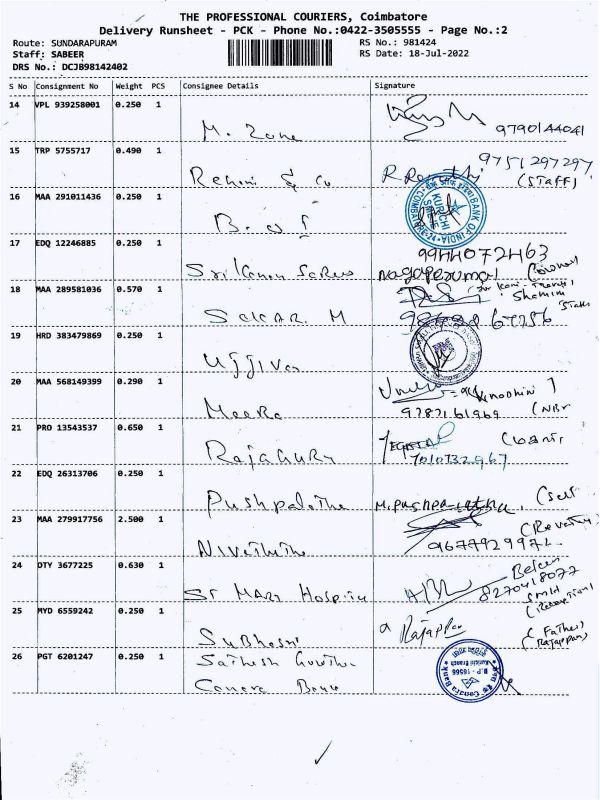 THE PROFESSIONAL COURIERS, Coimbatore
Delivery Runsheet - PCK - Phone No.:0422-3505555 - Page No.:2
Route: SUNDARAPURAM
RS No.: 981424
Staff: SABEER
RS Date: 18-Jul-2022
DRS No.: DCJB98142402
S No Consignment No Weight PCS Consignee Details Signature
14 VPL 939258001 0.250 1
M. Zone 9790144041
15 TRP 5755717 0.490 1
9751297297
Rehoni & Co (Staff)
16 MAA 291011436 0.250 1
BANK OF INDIA
KURICHI
B. o I
17 EDQ 12246885 0.250 1
9944072463
Sri Kanni Sarees nagaperumal (owner)
18 MAA 289581036 0.570 1
Shamini
Sekar. M
19 HRD 383479869 0.250 1
Ujjivan
20 MAA 568149399 0.290 1
Meera 9787161969 (NBr
21 PRO 13543537 0.650 1
Rajaguru 7010732967
22 EDQ 26313706 0.250 1
Pushpalatha M.Pushpa latha (Self
23 MAA 279917756 2.500 1
(Revathy)
Nivethitha 9677929971
24 DTY 3677225 0.630 1
8270418077
ST MARY Hospital SMH
(Reception)
25 MYD 6559242 0.250 1
Rajappan (Father)
(Rajappan)
Subhashni
26 PGT 6201247 0.250 1
Sathish Gowtham
Canara Bank
Canara Bank
Kurichi Branch
D.P - 18566